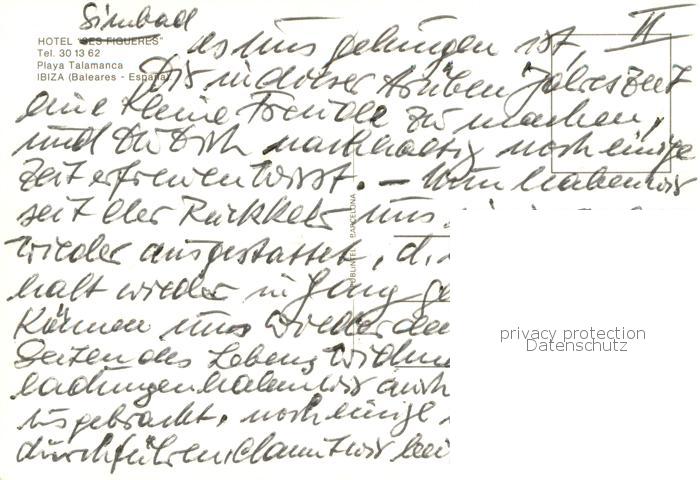 Sinbad
HOTEL "SES FIGUERES"
Tel. 30 13 62
Playa Talamanca
IBIZA (Baleares - España)
II
es uns gelungen ist,
Dir in dieser trüben Jahreszeit
eine kleine Freude zu machen,
und Du Dich nachhaltig noch einige
Zeit erfreuen wirst. – Nun haben wir
seit der Rückkehr uns
wieder ausgestattet, d.
halt wieder in Gang ge
können uns wieder den
Seiten des Lebens widm
ladungen haben wir auch
gebracht, noch einige
durchführen, damit wir bei
BARCELONA
privacy protection
Datenschutz